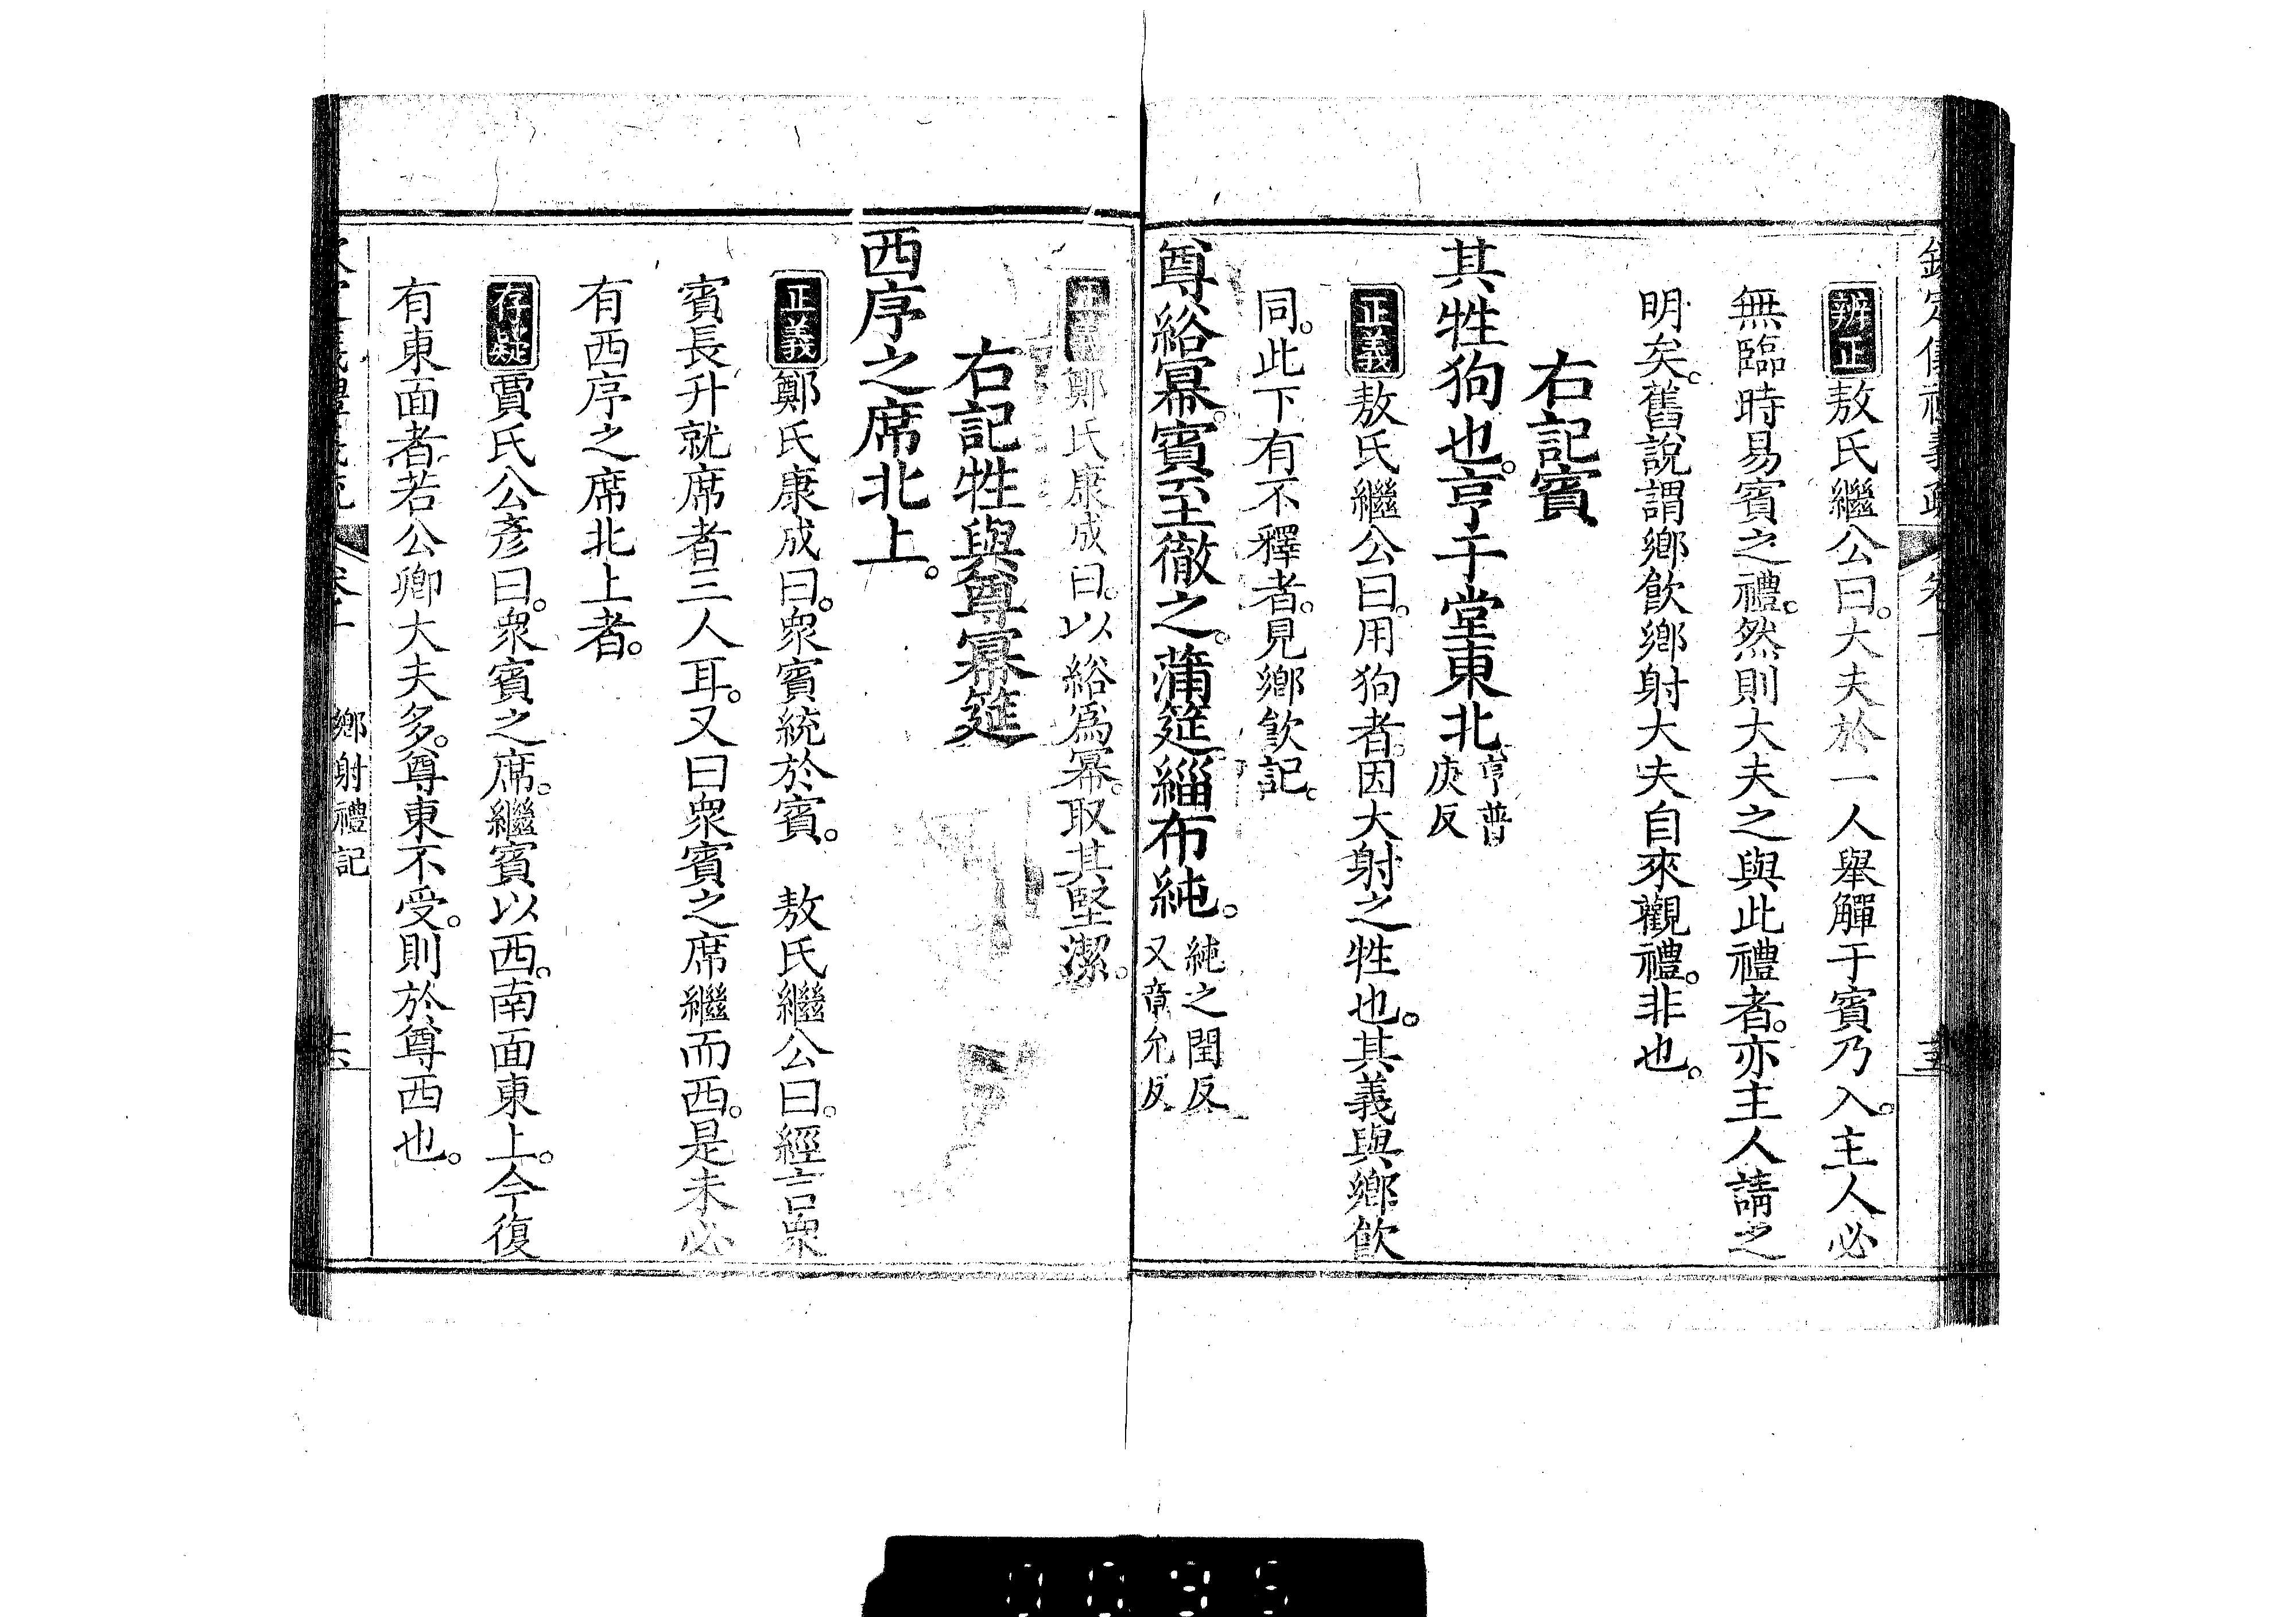 辨正敖氏繼公曰。大夫於一人舉觶于賓乃入。主人必
無臨時易賓之禮。然則大夫之與此禮者。亦主人請之
明矣。舊說謂鄉飲鄉射大夫自來觀禮。非也。
右記賓
其牲狗也。亨于堂東北亨普庚反
正義敖氏繼公曰。用狗者。因大射之牲也。其義與鄉飲
同。此下有不釋者。見鄉飲記。
尊綌冪。賓至徹之。蒲筵緇布純。純之閏反又章允反
正義鄭氏康成曰。以綌為冪。取其堅潔。
右記牲與尊冪筵
西序之席北上。
正義鄭氏康成曰。眾賓統於賓。 敖氏繼公曰。經言眾
賓長升就席者三人耳。又曰眾賓之席繼而西。是未必
有西序之席北上者。
存疑賈氏公彥曰。眾賓之席。繼賓以西。南面東上。今復
有東面者。若公卿大夫多。尊東不受。則於尊西也。
鄉射禮記